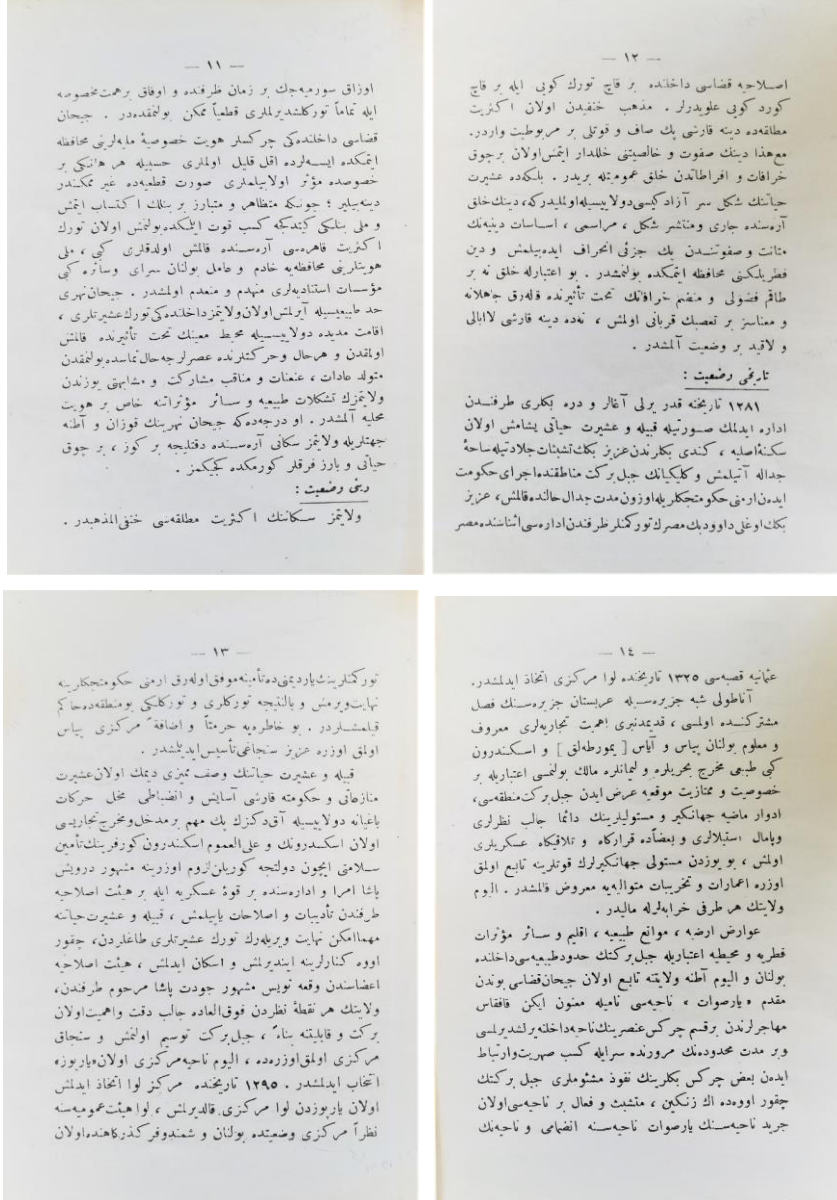 — ١١ —
اوزاق سورميه‌جك بر زمان ظرفنده و اوفاق برهمت مخصوصه
ايله تماماً توركلشديرلملرى قطعياً ممكن بولنمقده‌در . جيحان
قضاسى داخلنده‌كى چركسلر هويت خصوصيهٔ مليه‌لرينى محافظه
ايتمكده ايسه‌لرده اقل قليل اولملرى حسبيله هر هانكى بر
خصوصده مؤثر اولابيلملرى صورت قطعيه‌ده غير ممكندر
دينه‌بيلير ؛ چونكه متظاهر و متبارز بر بنلك اكتساب ايتمش
و ملى بنلكى كيتدكجه كسب قوت ايلمكده بولنمش اولان تورك
اكثريت قاهره‌سى آره‌سنده قالمش اولدقلرى كبى ، ملى
هويتلرينى محافظه‌يه خادم و عامل بولنان سراى وسائره كبى
مؤسسات استناديه‌لرى منهدم و منعدم اولمشدر . جيحان نهرى
حد طبيعيسيله آيرلمش اولان ولايتمز داخلنده‌كى تورك عشيرتلرى ،
اقامت مديده دولاييسيله محيط معينك تحت تأثيرنده قالمش
اولمقدن و هرحال وحركتلرنده عصرلرجه حال تماسده بولنمقدن
متولد عادات ، عنعنات و مناقب مشاركت و مشابهتى يوزندن
ولايتمزك تشكلات طبيعيه و سائر مؤثراتنه خاص بر هويت
محليه آلمشدر . او درجه‌ده‌كه جيحان نهرينك قوزان و آطنه
جهتلريله ولايتمز سكانى آره‌سنده دقتليجه بر كوز ، بر چوق
حياتى و بارز فرقلر كورمكده كجيكمز .
دينى وضعيت :
ولايتمز سكاننك اكثريت مطلقه‌سى حنفى المذهبدر .
— ١٢ —
اصلاحيه قضاسى داخلنده بر قاچ تورك كويى ايله بر قاچ
كورد كويى علويدرلر . مذهب حنفيدن اولان اكثريت
مطلقه‌ده دينه قارشى پك صاف و قوتلى بر مربوطيت واردر .
مع‌هذا دينك صفوت و خالصيتنى خللدار ايتمش اولان برچوق
خرافات و افراطاتدن خلق عموميتله بريدر . بلكه‌ده عشيرت
حياتنك شكل سر آزاد كيسى دولاييسيله اولمليدركه ، دينك خلق
آره‌سنده جارى ومنتشر شكل ، مراسمى ، اساسات دينيه‌نك
متانت و صفوتندن پك جزئى انحراف ايده‌بيلمش و دين
فطريلكنى محافظه ايتمكده بولنمشدر . بو اعتبارله خلق نه بر
طاقم فضولى و منضم خرافاتك تحت تأثيرنده قاله‌رق جاهلانه
و معناسز بر تعصبك قربانى اولمش ، نه‌ده دينه قارشى لاابالى
و لاقيد بر وضعيت آلمشدر .
تاريخى وضعيت :
١٢٨١ تاريخنه قدر يرلى آغالر و دره بكلرى طرفندن
اداره ايدلمك صورتيله قبيله و عشيرت حياتى يشامش اولان
سكنهٔ اصليه ، كندى بكلرندن عزيز بكك تشبثات جلادتيله ساحهٔ
جداله آتيلمش و كليكيانك جبل بركت مناطقنده اجراى حكومت
ايدەن ارمنى حكومتجكلريله اوزون مدت جدال حالنده قالمش ، عزيز
بكك اوغلى داوود بك مصرك توركمنلر طرفندن اداره‌سى اثناسنده مصر
— ١٣ —
توركمنلرينك ياردیمنى ده تأمينه موفق اوله‌رق ارمنى حكومتجكلرينه
نهايت ويرمش و بالنتيجه توركلرى و توركلكى بو منطقه‌ده حاكم
قيلمشلردر . بو خاطره‌يه حرمتاً و اضافةً مركزى پياس
اولمق اوزره عزيز سنجاغى تأسيس ايديلمشدر .
قبيله و عشيرت حياتنك وصف مميزى ديمك اولان عشيرت
منازعاتى و حكومته قارشى آسايش و انضباطى مخل حركات
باغيانه دولاييسيله آق دكزك پك مهم بر مدخل ومخرج تجاريسى
اولان اسكندرونك و على العموم اسكندرون كورفزينك تأمين
سلامتى ايچون دولتجه كوريلن لزوم اوزرينه مشهور درويش
پاشا امرا و اداره‌سنده بر قوهٔ عسكريه ايله بر هيئت اصلاحيه
طرفندن تأديبات و اصلاحات ياپيلمش ، قبيله و عشيرت حياتنه
مهماامكن نهايت ويريله‌رك تورك عشيرتلرى طاغلردن ، چقور
اووه كنارلرينه اينديرلمش و اسكان ايدلمش ، هيئت اصلاحيه
اعضاسندن وقعه نويس مشهور جودت پاشا مرحوم طرفندن ،
ولايتك هر نقطهٔ نظردن فوق العاده جالب دقت واهميت اولان
بركت و قابليتنه بناءً ، جبل بركت توسيم اولنمش و سنجاق
مركزى اولمق اوزره‌ده ، اليوم ناحيه مركزى اولان «يارپوز»
انتخاب ايدلمشدر . ١٢٩٥ تاريخنده مركز لوا اتخاذ ايدلمش
اولان يارپوزدن لوا مركزى قالديرلمش ، لوا هيئت عموميه‌سنه
نظراً مركزى وضعيتده بولنان و شمندوفر كذركاهنده اولان
— ١٤ —
عثمانيه قصبه‌سى ١٣٢٥ تاريخنده لوا مركزى اتخاذ ايدلمشدر.
آناطولى شبه جزيره‌سيله عربستان جزيره‌سنك فصل
مشتركنده اولمسى ، قديمدنبرى اهميت تجاريه‌لرى معروف
و معلوم بولنان پياس و آياس [ يمورطه‌لق ] و اسكندرون
كبى طبيعى مخرج بحريلره و ليمانلره مالك بولنمسى اعتباريله بر
خصوصيت و ممتازيت موقعيه عرض ايدن جبل بركت منطقه‌سى،
ادوار ماضيه جهانكير و مستوليلرينك دائما جالب نظرلرى
وپامال استيلالرى و بعضاًده قراركاه و تلاقيكاه عسكريلرى
اولمش ، بو يوزدن مستولى جهانكيرلرك قوتلرينه تابع اولمق
اوزره اعمارات و تخريبات متواليه‌يه معروض قالمشدر . اليوم
ولايتك هر طرفى خرابه‌لرله ماليدر .
عوارض ارضيه ، موانع طبيعيه ، اقليم و سائر مؤثرات
فطريه و محيطيه اعتباريله جبل بركتك حدود طبيعيه‌سى داخلنده
بولنان و اليوم آطنه ولايتنه تابع اولان جيحان قضاسى بوندن
مقدم « يارصوات » ناحيه‌سى ناميله معنون ايكن قافقاس
مهاجرلرندن برقسم چركس عنصرينك ناحيه داخلنه يرلشديرلمسى
وبر مدت محدوده‌نك مرورنده سرايله كسب صهريت وارتباط
ايدەن بعض چركس بكلرينك نفوذ مشئوملرى جبل بركتك
چقور اووه‌ده اك زنكين ، متشبث و فعال بر ناحيه‌سى اولان
جريد ناحيه‌سنك يارصوات ناحيه‌سنه انضمامى و ناحيه‌نك